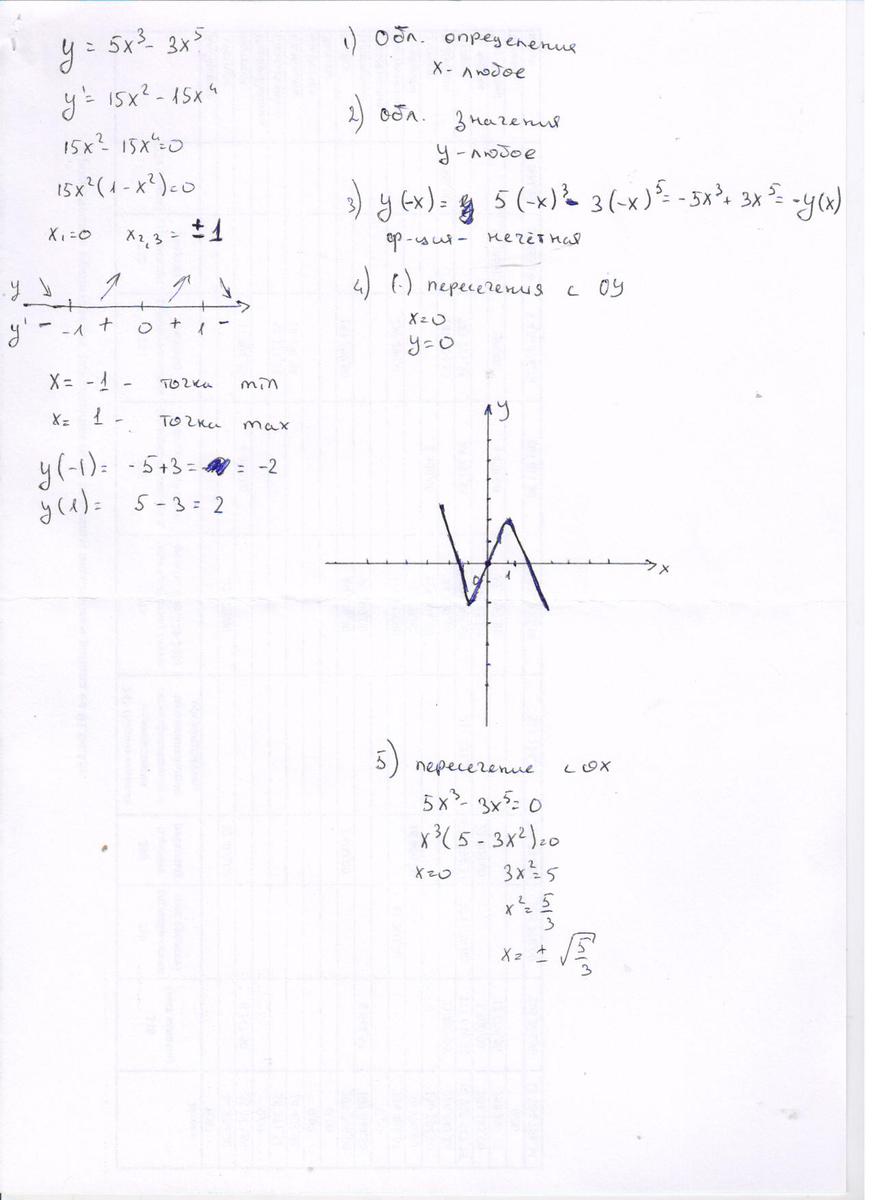 y = 5x³ - 3x⁵
y' = 15x² - 15x⁴
15x² - 15x⁴ = 0
15x²(1 - x²) = 0
x₁ = 0 x₂,₃ = ±1
y
y' - -1 + 0 + 1 -
x = -1 - точка min
x = 1 - точка max
y(-1) = -5+3 = = -2
y(1) = 5 - 3 = 2
1) Обл. определения
x - любое
2) Обл. значения
y - любое
3) y(-x) = 5(-x)³ - 3(-x)⁵ = -5x³ + 3x⁵ = -y(x)
ф-ция - нечётная
4) (·) пересечения с OY
x=0
y=0
y
0 1 x
5) пересечение с OX
5x³ - 3x⁵ = 0
x³(5 - 3x²) = 0
x=0 3x² = 5
x² = 5/3
x = ± √5/3